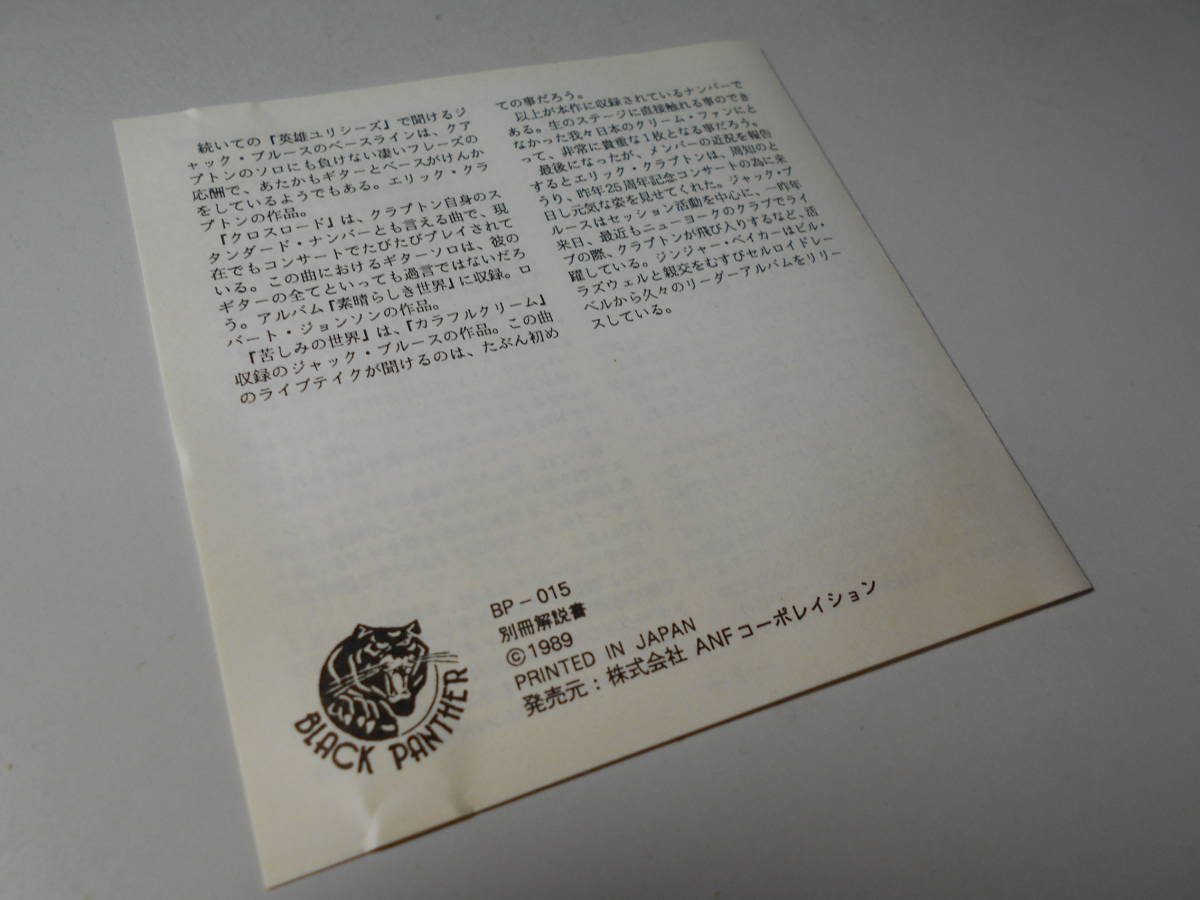 続いての『英雄ユリシーズ』で聞けるジ
ャック・ブルースのベースラインは、クア
プトンのソロにも負けない凄いフレーズの
応酬で、あたかもギターとベースがけんか
をしているようでもある。エリック・クラ
プトンの作品。
『クロスロード』は、クラプトン自身のス
タンダード・ナンバーとも言える曲で、現
在でもコンサートでたびたびプレイされて
いる。この曲におけるギターソロは、彼の
ギターの全てといっても過言ではないだろ
う。アルバム『素晴らしき世界』に収録。ロ
バート・ジョンソンの作品。
『苦しみの世界』は、『カラフルクリーム』
収録のジャック・ブルースの作品。この曲
のライブテイクが聞けるのは、たぶん初め
ての事だろう。
以上が本作に収録されているナンバーで
ある。生のステージに直接触れる事のでき
なかった我々日本のクリーム・ファンにと
って、非常に貴重な1枚となる事だろう。
最後になったが、メンバーの近況を報告
するとエリック・クラプトンは、周知のと
うり、昨年25周年記念コンサートの為に来
日し元気な姿を見せてくれた。ジャック・ブ
ルースはセッション活動を中心に、一昨年
来日、最近もニューヨークのクラブでライ
ブの際、クラプトンが飛び入りするなど、活
躍している。ジンジャー・ベイカーはビル・
ラズウェルと親交をむすびセルロイドレー
ベルから久々のリーダーアルバムをリリー
スしている。
BLACK PANTHER
BP-015
別冊解説書
©1989
PRINTED IN JAPAN
発売元：株式会社 ANFコーポレイション